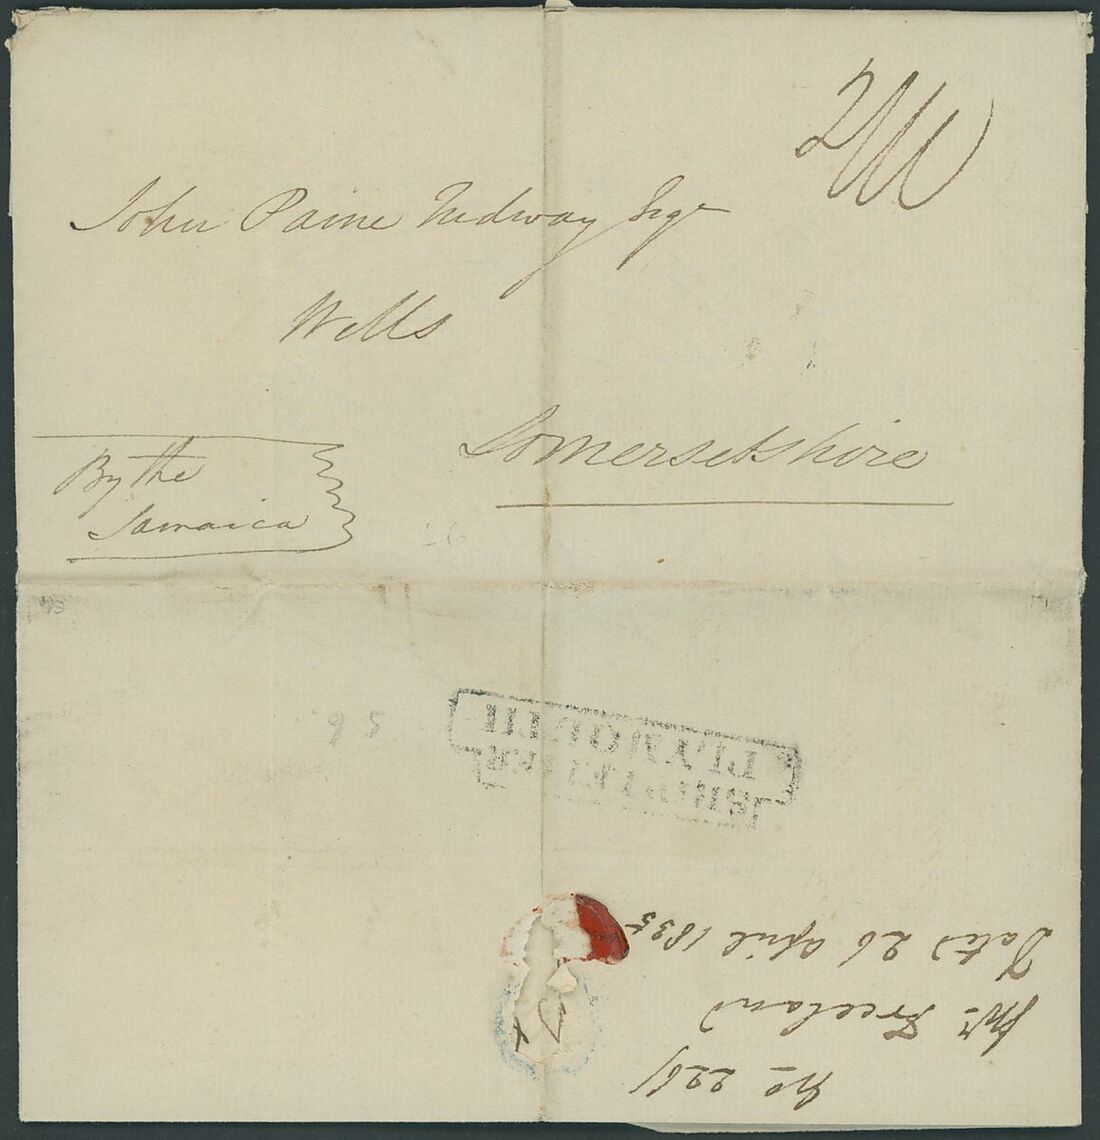 John Paine Tudway Esqr
Wells
Somersetshire
By the
Jamaica
95
SHIP LETTER
PLYMOUTH
No 226
Jno. Freeland
Dated 26 April 1835